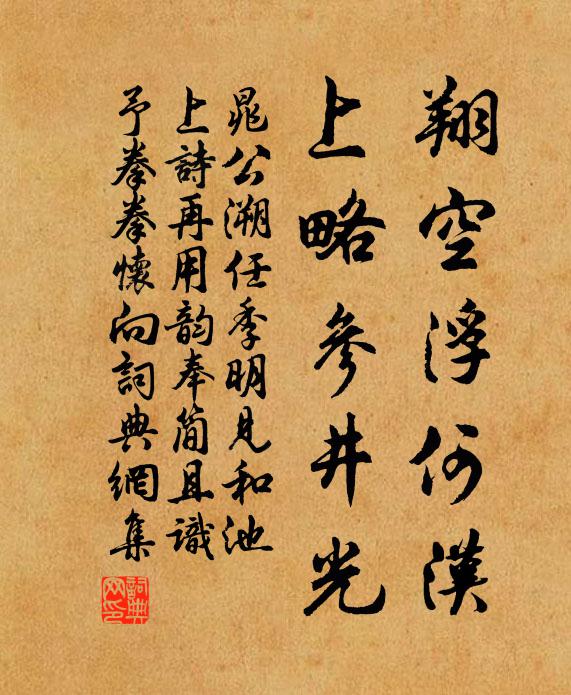 翔空浮何漢
上略參井光
晁公溯任季明見和池
上詩再用韵奉简且識
予拳拳懷向詞典網集
詞典網印